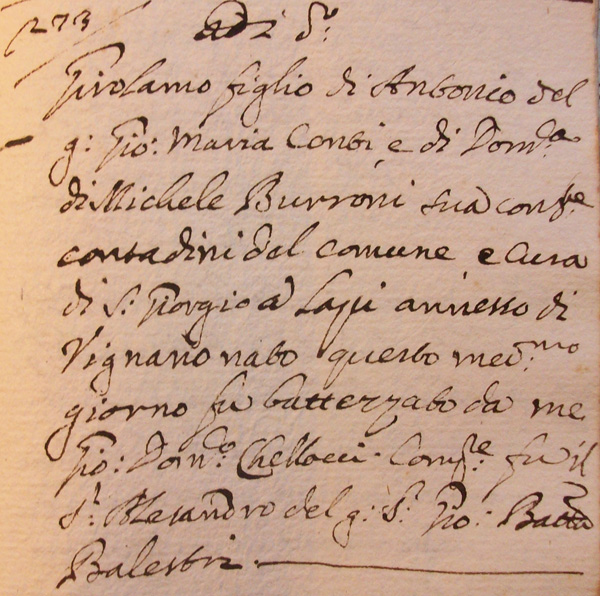 1273 adi d.º
Girolamo figlio di Antonio del
q: Gio: Maria Conti e di Dom.ca
di Michele Burroni sua cons.te
contadini del comune e Cura
di S. Giorgio a Lapi annesso di
Vignano nato questo med.mo
giorno fu battezzato da me
Gio: Dom.co Chellocci Comp.e fu il
S.r Alesandro del q: S.r Gio: Batta
Balestri.